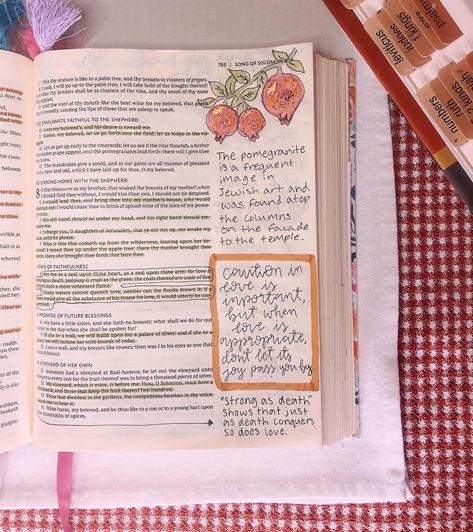 785 | SONG OF SOLOMON
This thy stature is like to a palm tree, and thy breasts to clusters of grapes.
I said, I will go up to the palm tree, I will take hold of the boughs thereof:
also thy breasts shall be as clusters of the vine, and the smell of thy nose
apples;
And the roof of thy mouth like the best wine for my beloved, that goeth
sweetly, causing the lips of those that are asleep to speak.
THE SHULAMITE FAITHFUL TO THE SHEPHERD
I am my beloved's, and his desire is toward me.
Come, my beloved, let us go forth into the field; let us lodge in the
Let us get up early to the vineyards; let us see if the vine flourish, whether
grape appear, and the pomegranates bud forth: there will I give thee
The mandrakes give a smell, and at our gates are all manner of pleasant
new and old, which I have laid up for thee, O my beloved.
RETURNING HOME WITH THE SHEPHERD
O that thou wert as my brother, that sucked the breasts of my mother! when
I should find thee without, I would kiss thee; yea, I should not be despised.
I would lead thee, and bring thee into my mother's house, who would
instruct me: I would cause thee to drink of spiced wine of the juice of my pome-
His left hand should be under my head, and his right hand should em-
I charge you, O daughters of Jerusalem, that ye stir not up, nor awake my
until he please.
Who is this that cometh up from the wilderness, leaning upon her be-
loved? I raised thee up under the apple tree: there thy mother brought thee
there she brought thee forth that bare thee.
VOWS OF FAITHFULNESS
Set me as a seal upon thine heart, as a seal upon thine arm: for love is
strong as death; jealousy is cruel as the grave: the coals thereof are coals of fire,
which hath a most vehement flame.
Many waters cannot quench love, neither can the floods drown it: if a
man would give all the substance of his house for love, it would utterly be con-
A PROMISE OF FUTURE BLESSINGS
We have a little sister, and she hath no breasts: what shall we do for our
sister in the day when she shall be spoken for?
If she be a wall, we will build upon her a palace of silver: and if she be a
door, we will inclose her with boards of cedar.
I am a wall, and my breasts like towers: then was I in his eyes as one that
found favour.
VINEYARD OF HER OWN
Solomon had a vineyard at Baal-hamon; he let out the vineyard unto
keepers; every one for the fruit thereof was to bring a thousand pieces of silver.
My vineyard, which is mine, is before me: thou, O Solomon, must have a
thousand, and those that keep the fruit thereof two hundred.
Thou that dwellest in the gardens, the companions hearken to thy voice:
cause me to hear it.
Make haste, my beloved, and be thou like to a roe or to a young hart upon
the mountains of spices.
The pomegranite
is a frequent
image in
Jewish art and
was found atop
the columns
on the facade
to the temple.
Caution in
love is
important,
but when
love is
appropriate,
don't let its
joy pass you by
"strong as death"
shows that just
as death conquers
so does love.
leviticus
judges
1 kings
psalms
numbers
ruth